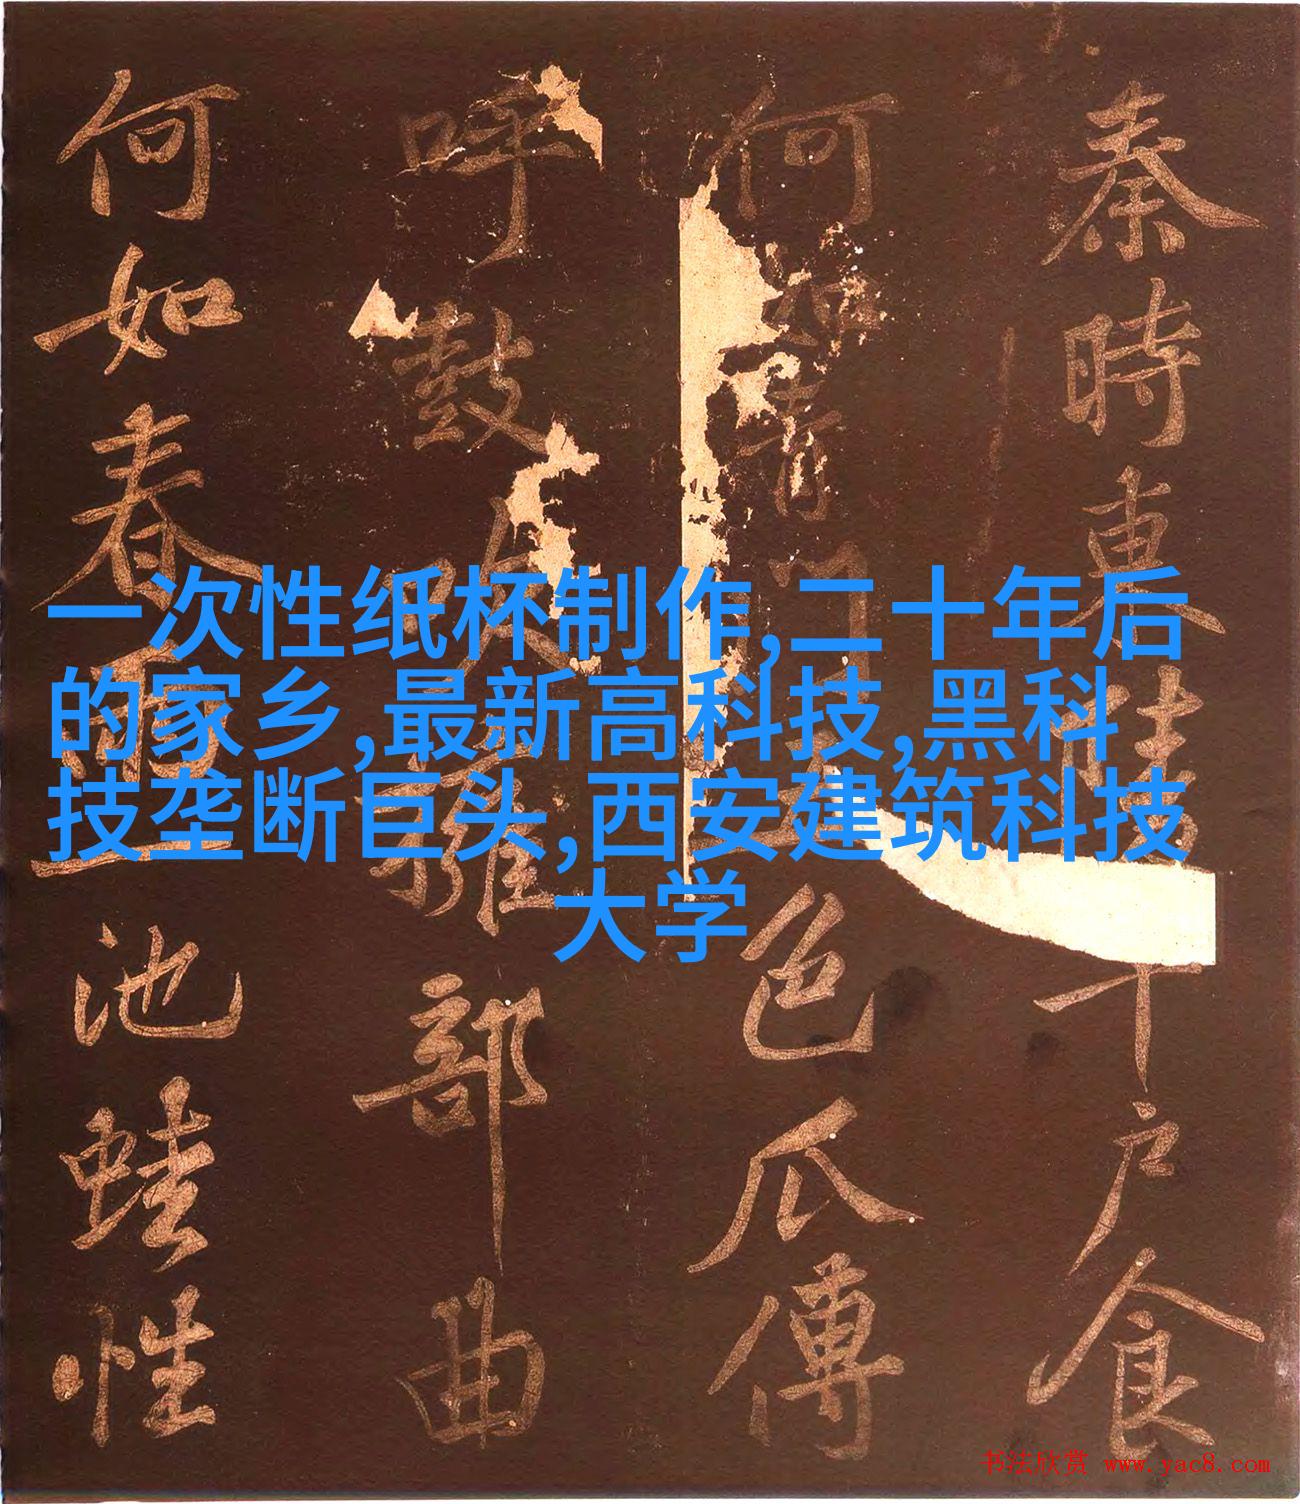 秦時東陵千戶食
何如青門色瓜傅
呼鼓吹擁部曲
何如春雨一池蛙性
一次性纸杯制作,二十年后
的家乡,最新高科技,黑科
技垄断巨头,西安建筑科技
大学
书法欣赏 www.yac8.com